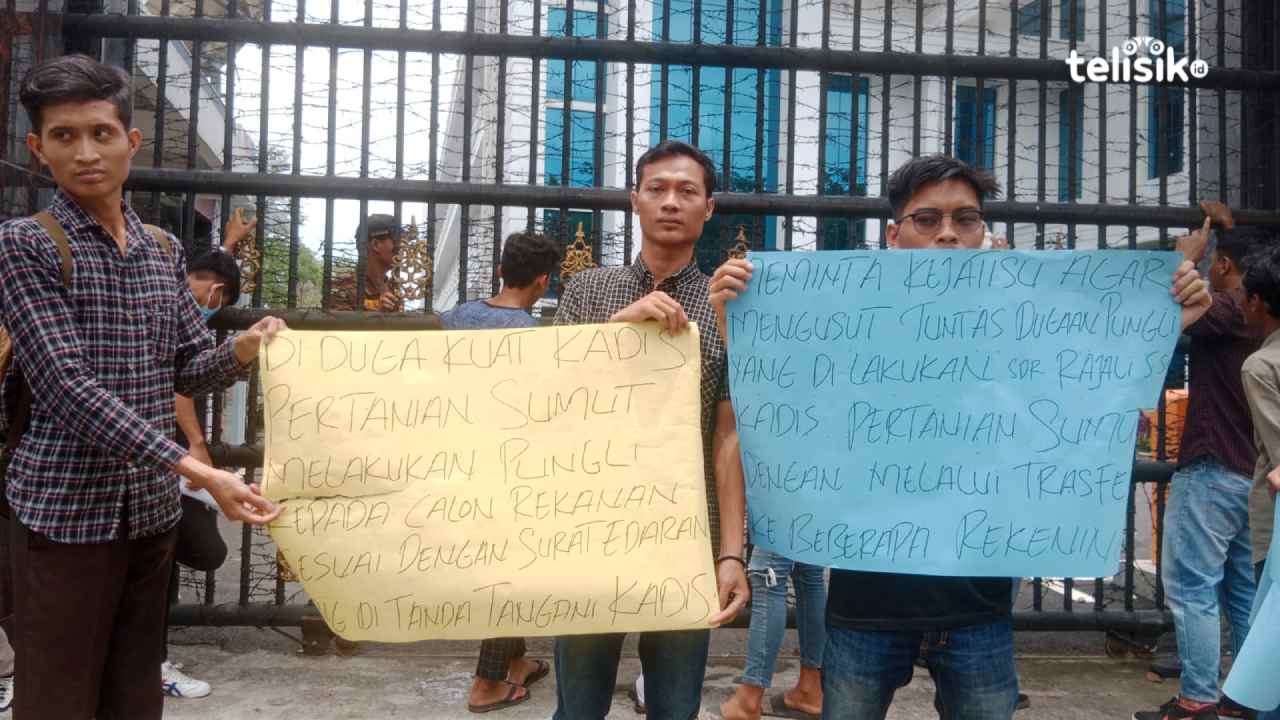 telisik.id
DI DUGA KUAT KADIS
PERTANIAN SUMUT
MELAKUKAN PUNGLI
KEPADA CALON REKANAN
SESUAI DENGAN SURAT EDARAN
DI TANDA TANGANI KADIS
MEMINTA KEJATISU AGAR
MENGUSUT TUNTAS DUGAAN PUNGLI
YANG DI LAKUKAN SDR RAJALI SS
KADIS PERTANIAN SUMUT
DENGAN MELALUI TRASFE
KE BEBERAPA REKENIN